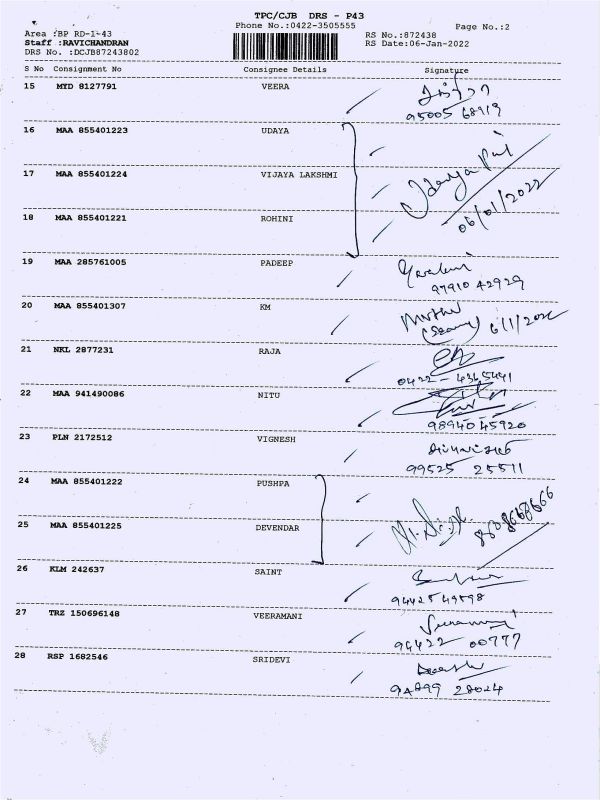 TPC/CJB DRS - P43
Phone No.:0422-3505555
Page No.:2
Area :BP RD-1-43
RS No.:872438
Staff :RAVICHANDRAN
RS Date:06-Jan-2022
DRS No. :DCJB87243802
S No Consignment No Consignee Details Signature
15 MYD 8127791 VEERA
95005 68919
16 MAA 855401223 UDAYA
17 MAA 855401224 VIJAYA LAKSHMI
06/01/2022
18 MAA 855401221 ROHINI
19 MAA 285761005 PADEEP
97910 42929
20 MAA 855401307 KM
6/1/2022
21 NKL 2877231 RAJA
22 MAA 941490086 NITU
98940 45920
23 PLN 2172512 VIGNESH
99525 25511
24 MAA 855401222 PUSHPA
25 MAA 855401225 DEVENDAR
26 KLM 242637 SAINT
94425 49598
27 TRZ 150696148 VEERAMANI
94422 00777
28 RSP 1682546 SRIDEVI
94899 28024